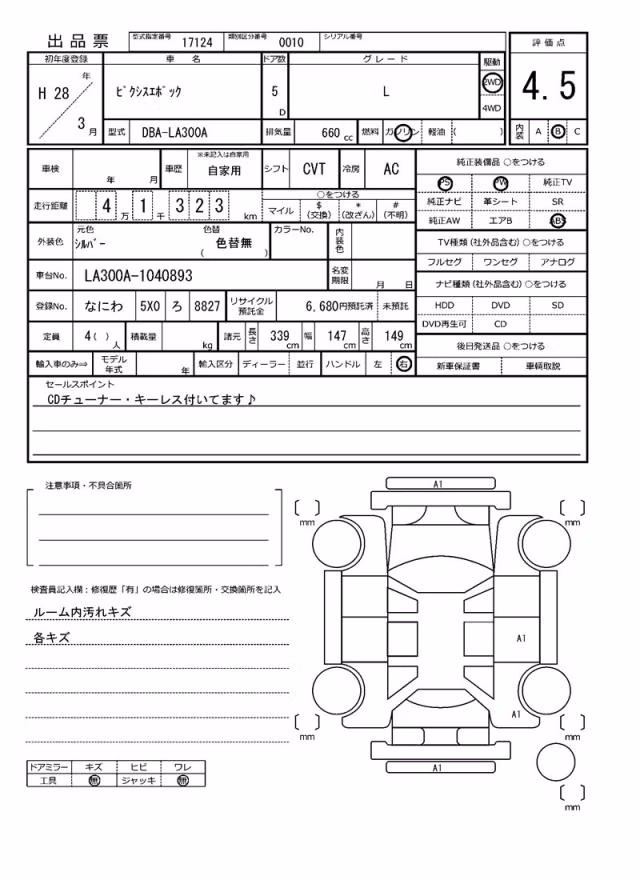 出品票 型式指定番号 17124 類別区分番号 0010 シリアル番号
評価点
4.5
内装 A B C
初年度登録 車名 ドア数 グレード 駆動
H 28 年 3 月 ﾋﾟｸｼｽｴﾎﾟｯｸ 5 D L 2WD 4WD
型式 DBA-LA300A 排気量 660 cc 燃料 ガソリン 軽油 ( )
車検 年 月 車歴 ※未記入は自家用 自家用 シフト CVT 冷房 AC
走行距離 4 万 1 千 3 2 3 km ○をつける マイル $ (交換) * (改ざん) # (不明)
外装色 元色 ｼﾙﾊﾞｰ 色替 ( 色替無 ) カラーNo. 内装色
車台No. LA300A-1040893 名変期限 月 日
登録No. なにわ 5X0 ろ 8827 リサイクル預託金 6,680円預託済 未預託
定員 4 ( ) 人 積載量 kg 諸元 長さ 339 cm 幅 147 cm 高さ 149 cm
輸入車のみ⇨ モデル年式 年 輸入区分 ディーラー 並行 ハンドル 左 右
純正装備品 ○をつける
PS PW 純正TV
純正ナビ 革シート SR
純正AW エアB ABS
TV種類 (社外品含む) ○をつける
フルセグ ワンセグ アナログ
ナビ種類 (社外品含む) ○をつける
HDD DVD SD
DVD再生可 CD
後日発送品 ○をつける
新車保証書 車輌取説
セールスポイント
CDチューナー・キーレス付いてます♪
注意事項・不具合箇所
検査員記入欄：修復歴「有」の場合は修復箇所・交換箇所を記入
ルーム内汚れキズ
各キズ
ドアミラー キズ ヒビ ワレ
工具 無 ジャッキ 無
A1
mm mm
A1
A1
mm mm
A1
mm